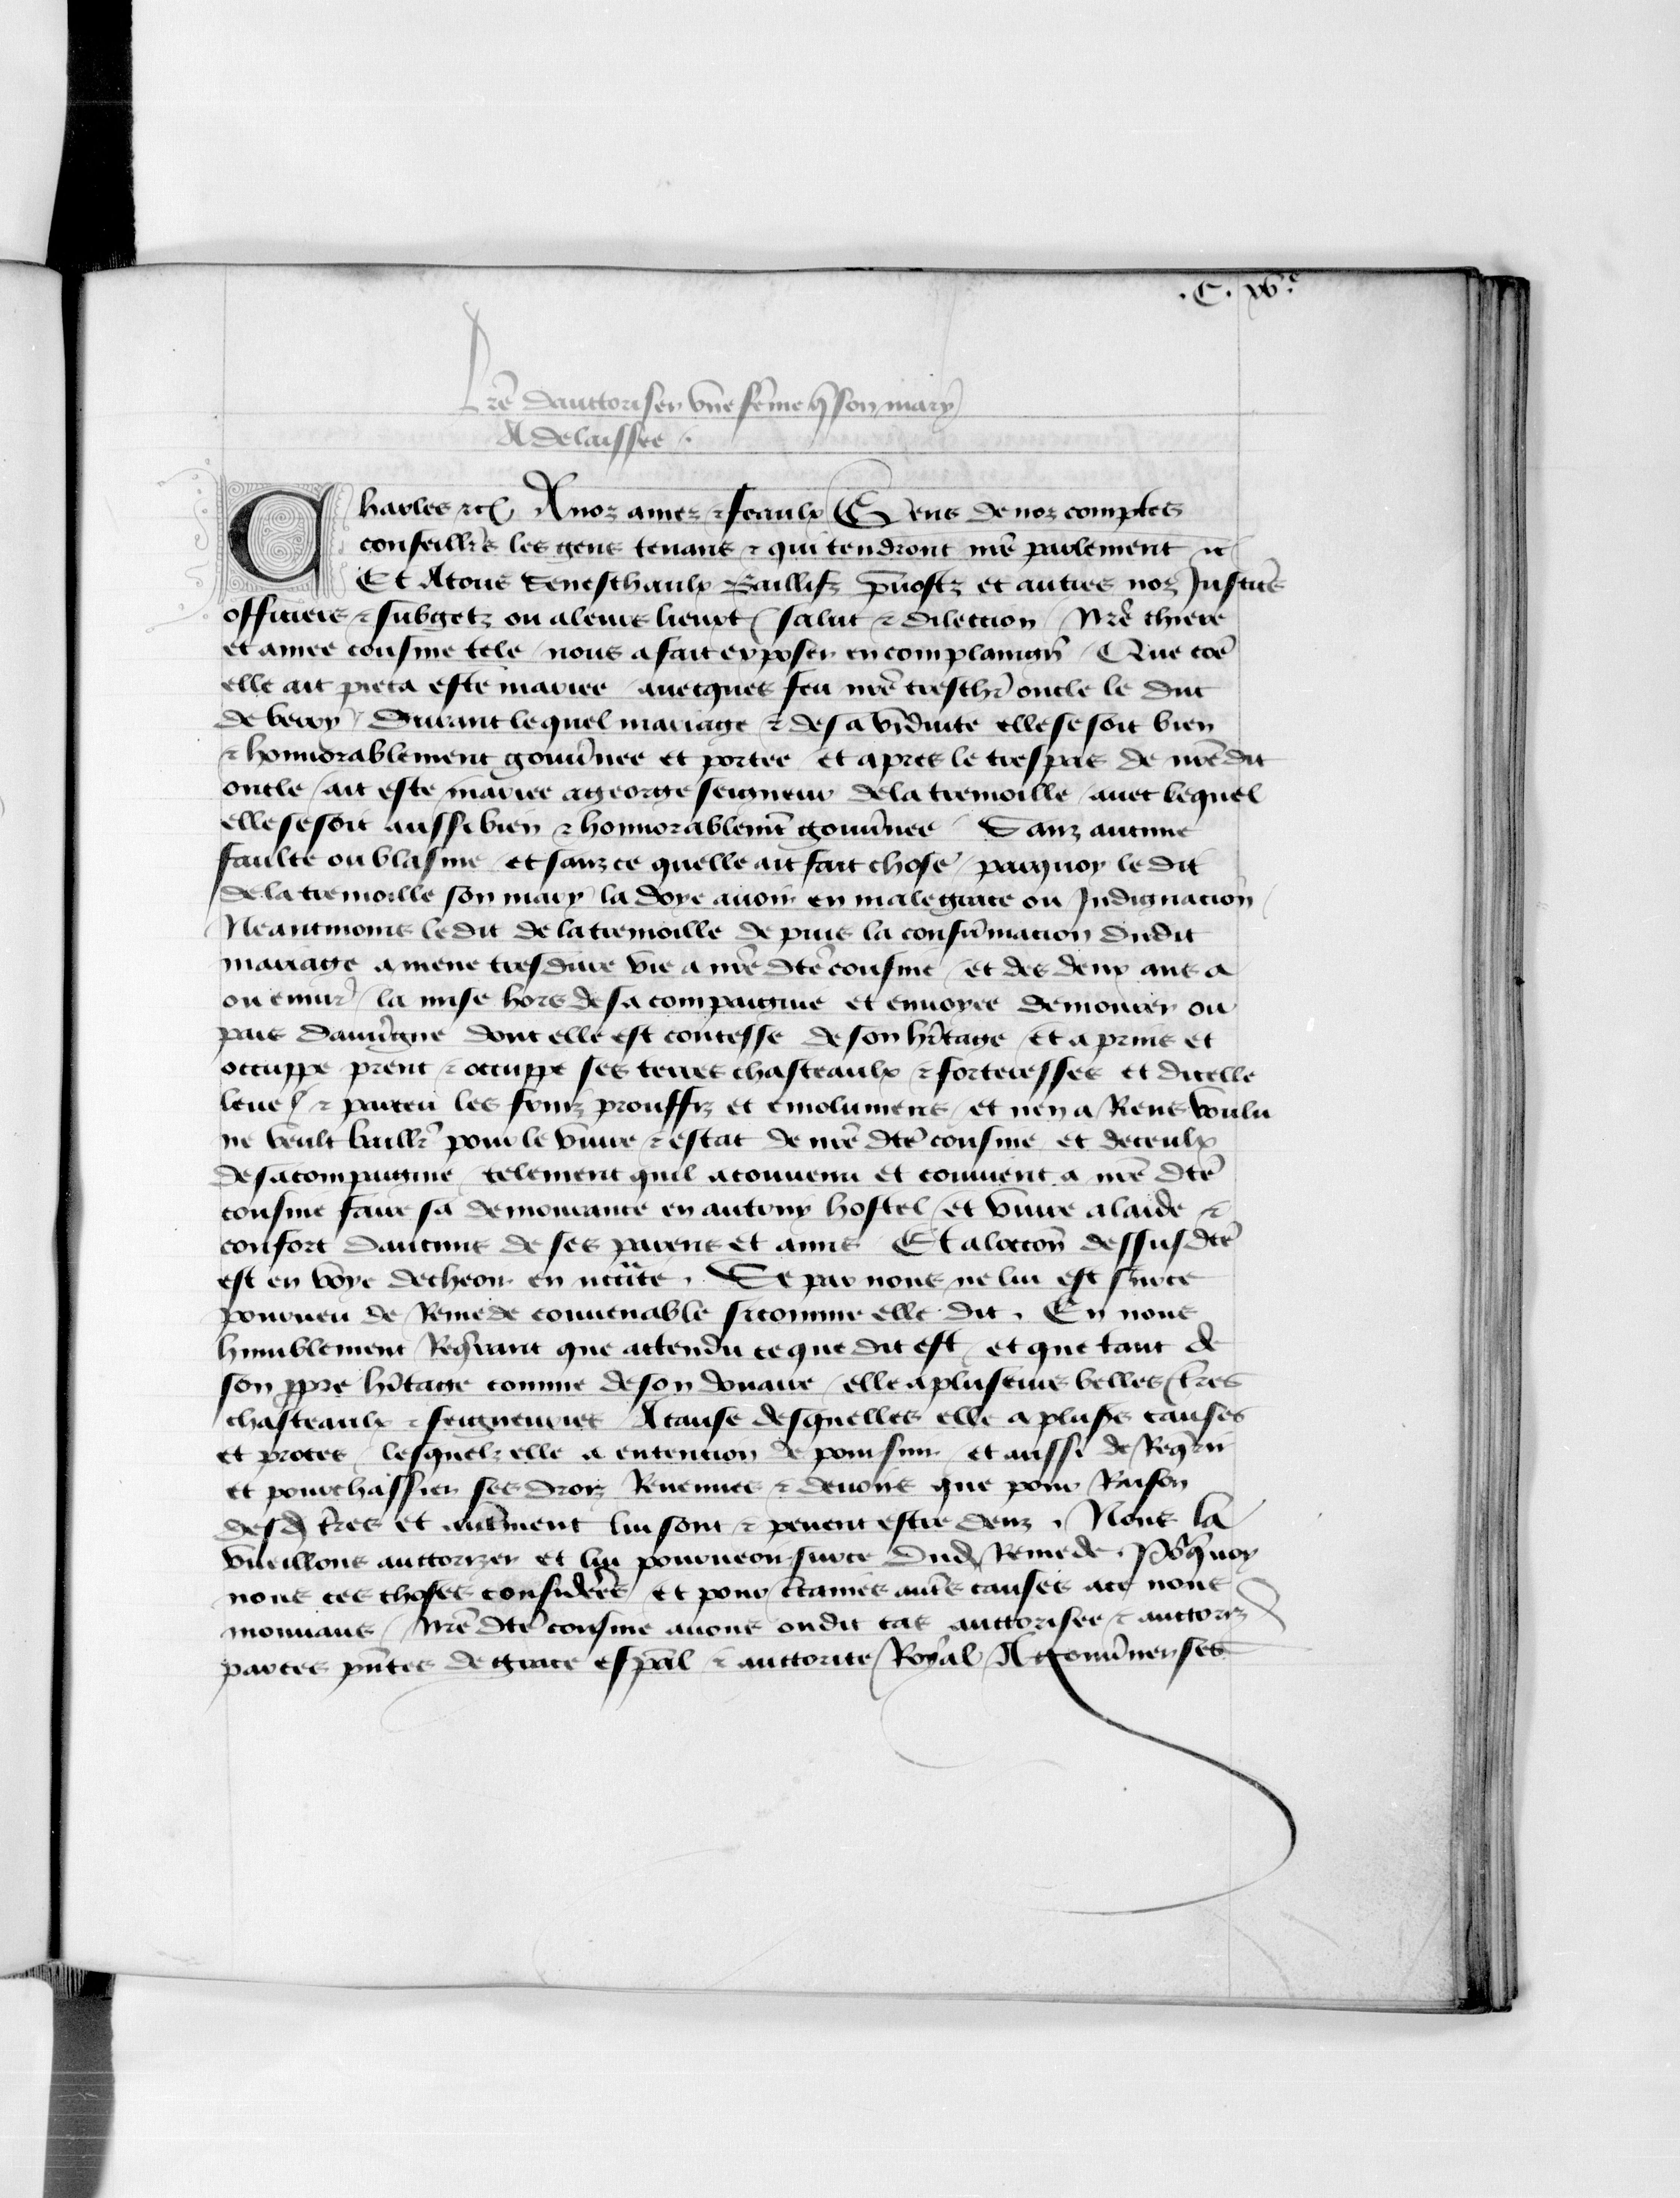 .C. xvᵉ
Lr̃e dauttoriser vne fẽme q̃ son mary
A delaissee .
Charles ⁊cͣ A noz amez ⁊ feaulx Gens de noz comptes
conseillr̃s les gens tenans ⁊ qui tendront nr̃e parlement ⁊c
Et Atous Seneschaulx Baillifz p̃uostz et autres noz Justic̃s
officiers ⁊ subgetz ou aleurs lieuxt / salut ⁊ dilection / Nr̃e chiere
et amee cousine tele / nous a fait exposer en complaingñ / Que cõe
elle ait pieca este mariee / auecques feu nr̃e treschr̃ oncle le duc
de berry / Durant lequel mariage ⁊ de sa viduite elle se soit bien
⁊ honnorablement gouũnee et portee / et apres le trespas de nr̃e dit
oncle / ait este mariee a george seigneur de la tremoille / auec lequel
elle se soit aussi bien ⁊ honnorablemẽt gouũnee / Sanz aucune
faulte ou blasme / et sanz ce quelle ait fait chose / parquoy le dit
de la tremoille son mary la doye auoir en malegrace ou Indignacion /
Neantmoins le dit de la tremoille depuis la consũmacion dudit
mariage a mene tresdure vie a nr̃e dcẽ cousine / et des deux ans a
ou enuir̃ / la mise hors de sa compaignie et enuoyee demourer ou
pais dauũgne dont elle est contesse de son hr̃itage / et a prins et
occuppe prent ⁊ occuppe ses terres chasteaulx ⁊ forteresses et dicelle
leue / ⁊ parceu les fruiz prouffiz et emolumens / et nen a Riens voulu
ne veult baillr̃ pour le viure ⁊ estat de nr̃e dcẽ cousine et de ceulx
de sa compaignie / telement quil a conuenu et conuient a nr̃e dcẽ
cousine faire sa demourance en autruy hostel / et viure a laide ⁊
confort daucuns de ses parens et amis / Et a loccõn dessusdcẽ
est en voye decheoir en ncc̃ite . Se par nous ne lui est surce
pourueu de Remede conuenable sicomme elle dit . En nous
humblement Reqr̃ant que attendu ce que dit est / et que tant de
son ppre hr̃itage comme de son douaire / elle a plusieurs belles tr̃es
chasteaulx ⁊ seigneuries A cause desquelles elle a plusrs̃ causes
et proces / lesquelz elle a entencion de poursuir / et aussi de Reqr̃ir
et pourchassier ses droiz Reuenues ⁊ deuoirs que pour Raison
desd̃ tr̃es et autr̃ment lui sont ⁊ peuent estre deuz . Nous la
vueillons auttorizer et lui pourueoir surce dud̃ Remede . Po᷑quoy
nous ces choses consider̃es et pour c̃taines aut̃s causes ace nous
mouuans / Nr̃e dcẽ cousine auons oudit cas auttorisee ⁊ auttoriz̃
par ces pñtes de grace esp̃al ⁊ auttorite Royal / A gouũner ses